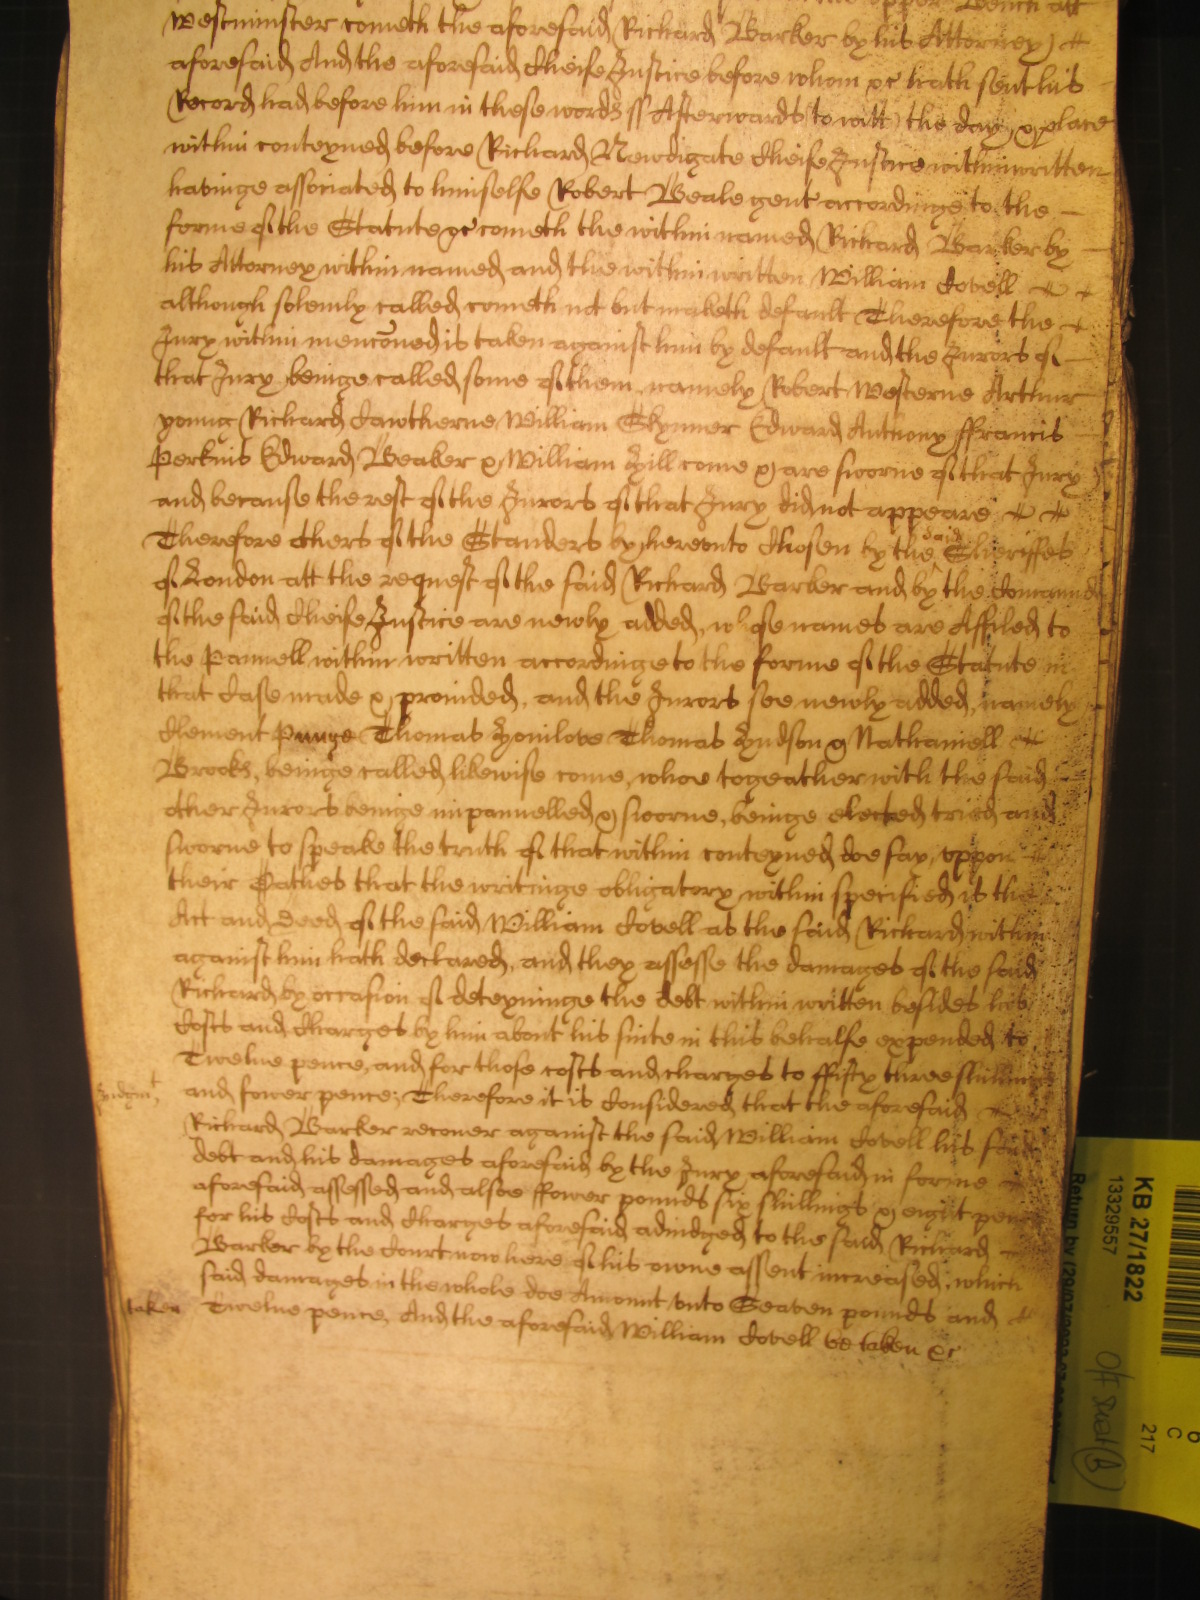 Upper Bench att
Westminster cometh the aforesaid Richard Barker by his Attorney
aforesaid And the aforesaid Cheife Justice before whom &c hath sent his
Record had before him in these words ss Afterwards (to witt) the day & place
within conteyned before Richard Newdigate Cheife Justice within written
havinge associated to himselfe Robert Beale gent accordinge to the
forme of the Statute &c cometh the within named Richard Barker by
his Attorney within named and the within written William Covell
although solemly called cometh not but maketh default Therefore the
Jury within menconed is taken against him by default and the Jurors of
that Jury beinge called some of them namely Robert Westerne Arthur
younge Richard Cawtherne William Skynner Edward Anthony ffrancis
Perkins Edward Beaker & William Hill come & are sworne of that Jury
and because the rest of the Jurors of that Jury did not appeare
Therefore others of the Standers by hereonto Chosen by the said Sheriffes
of London att the request of the said Richard Barker and by the Comaund
of the said Cheife Justice are newly added, whose names are Affiled to
the Pannell within written accordinge to the forme of the Statute in
that Case made & provided, and the Jurors soe newly added, namely
Clement Punge Thomas Homlove Thomas Hudson & Nathaniell
Brooks, beinge called likewise come, whoe togeather with the said
other Jurors beinge impannelled & sworne, beinge elected tried and
sworne to speake the truth of that within conteyned doe say, vppon
their Oathes that the writinge obligatory within specified is the
Act and Deed of the said William Covell as the said Richard within
against him hath declared, and they assesse the damages of the said
Richard by occasion of deteyninge the debt within written besides his
Costs and Charges by him about his suite in this behalfe expended to
Twelue pence, and for those costs and charges to ffifty three shillings
Judgmt
and fower pence; Therefore it is Considered that the aforesaid
Richard Barker recouer against the said William Covell his said
debt and his damages aforesaid by the Jury aforesaid in forme
aforesaid assessed and alsoe ffower pounds six shillings & eight pence
for his Costs and Charges aforesaid adiudged to the said Richard
Barker by the Court now here of his owne assent increased, which
said damages in the whole doe Amount vnto Seaven pounds and
taken
Twelue pence, And the aforesaid William Covell be taken &c
KB 27/1822
13329557
217